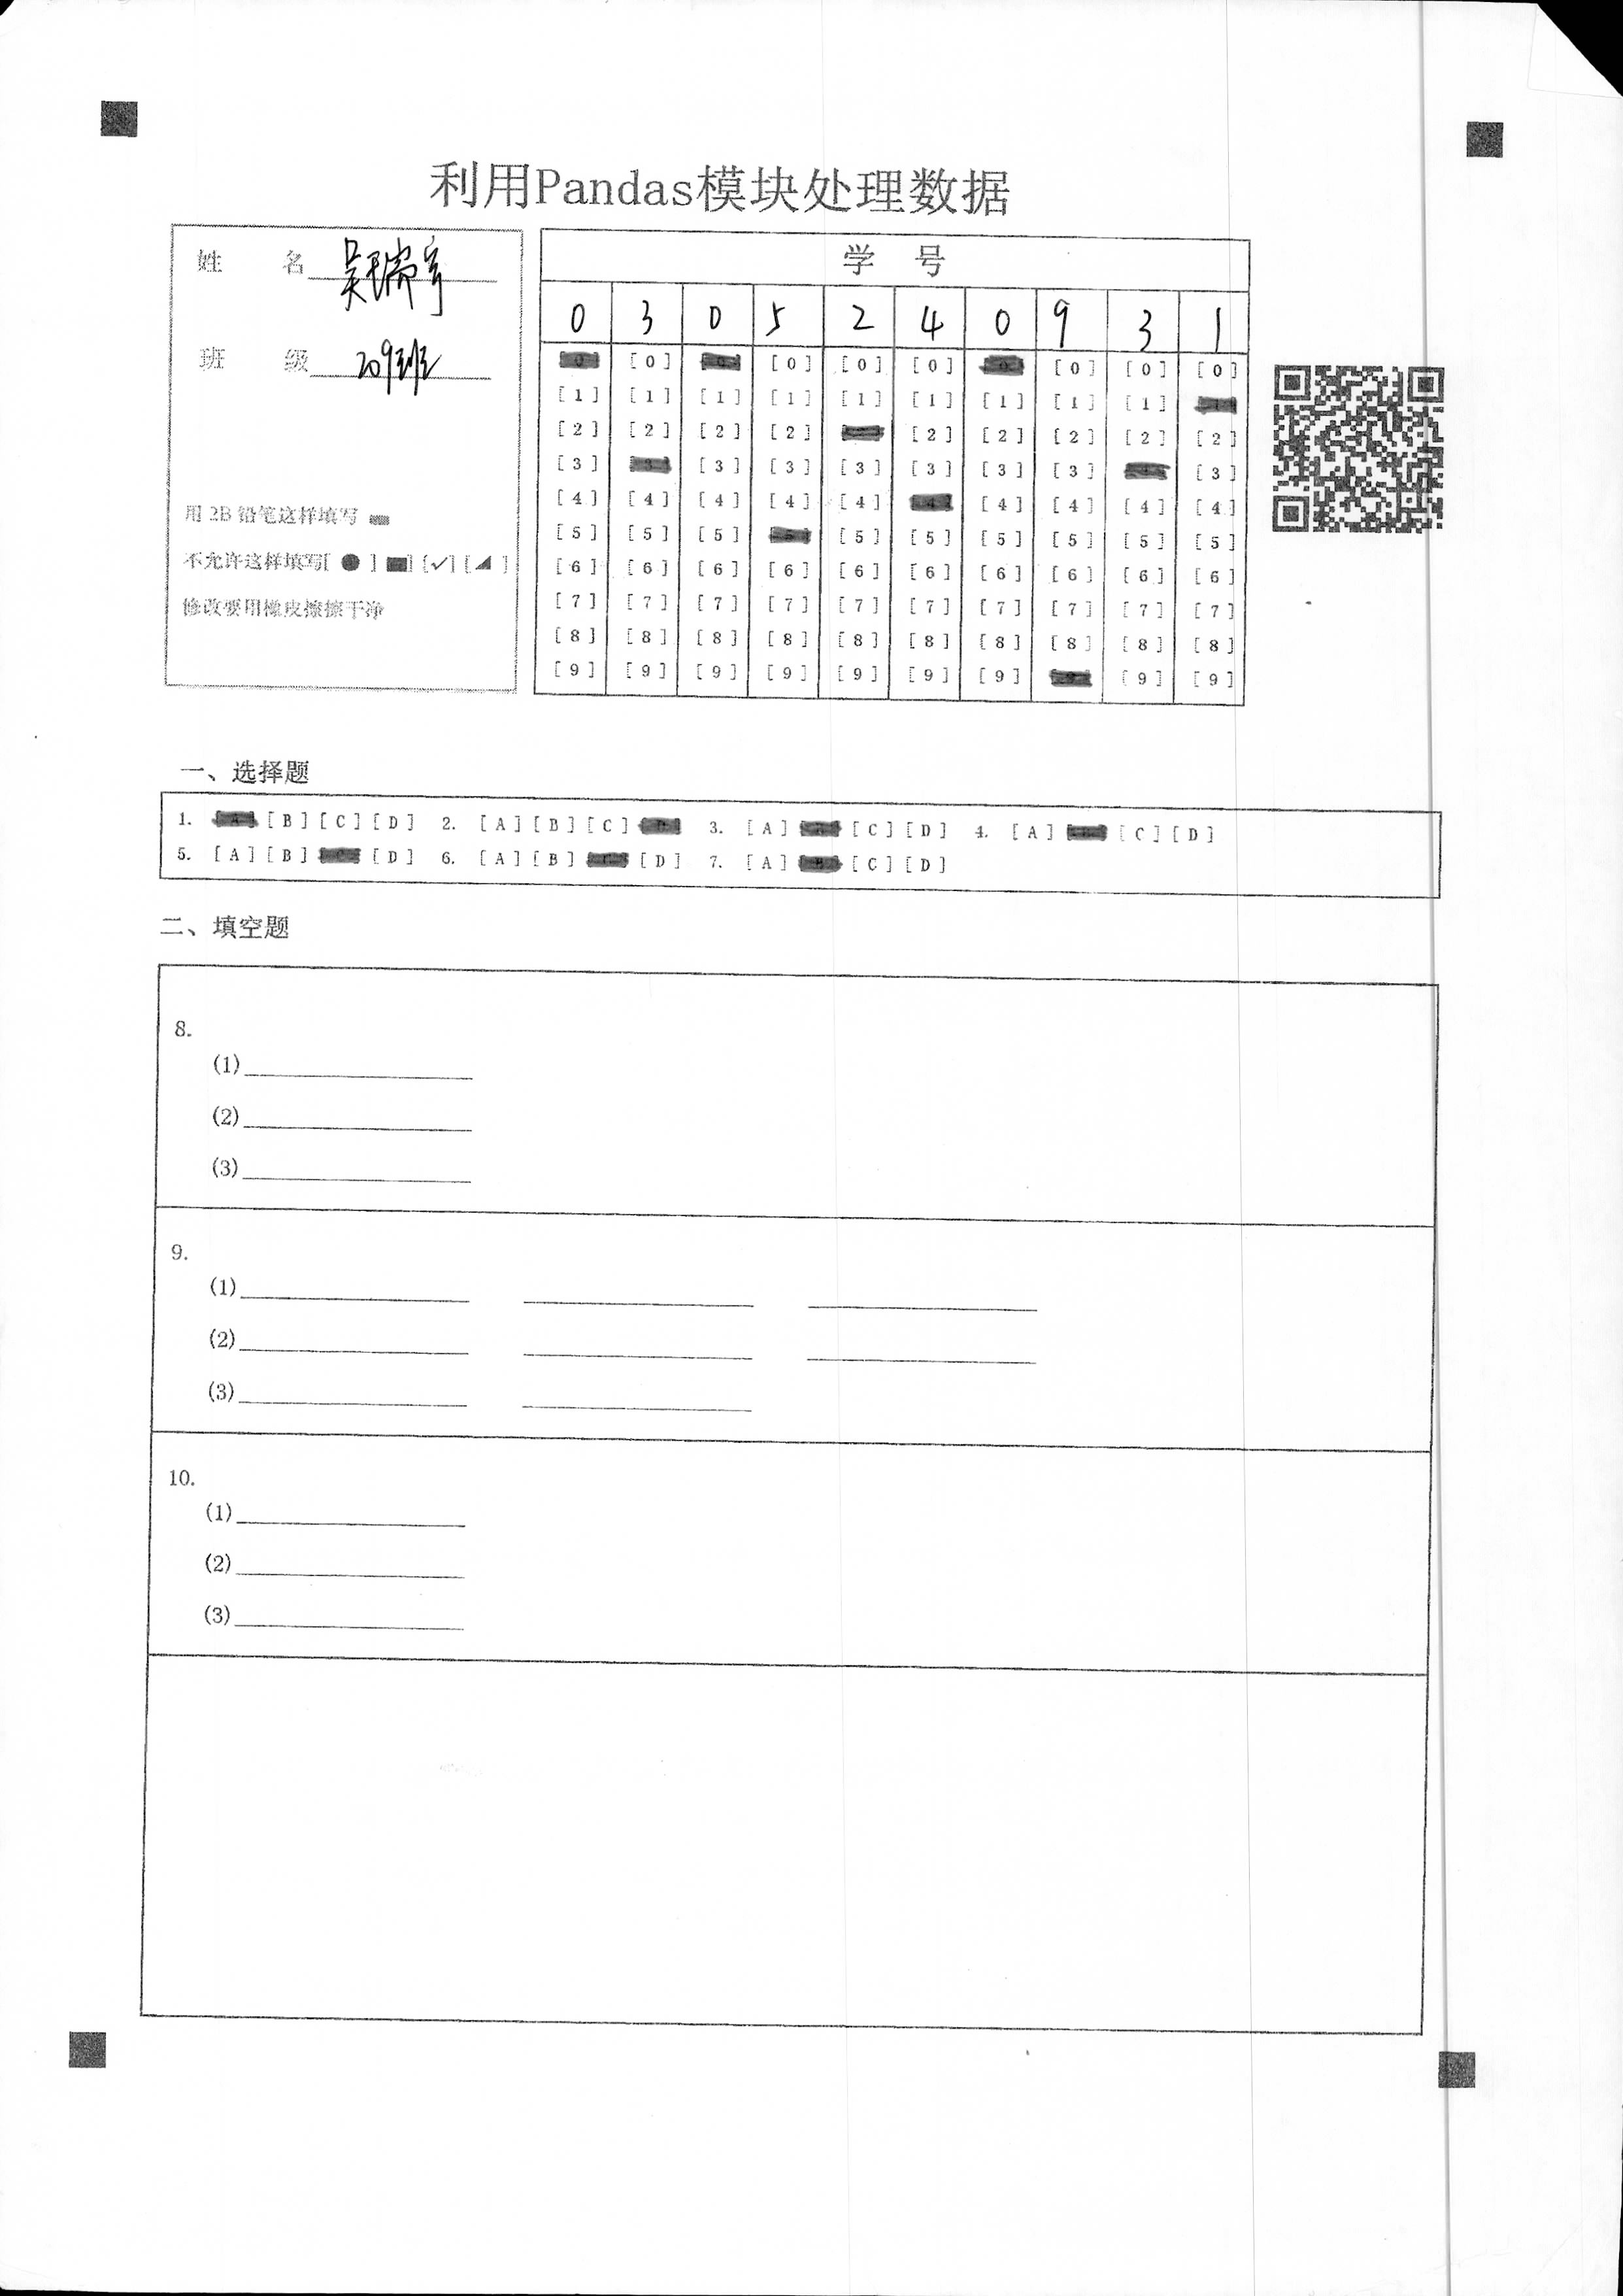 利用Pandas模块处理数据
姓 名 吴瑞宇
班 级 209班
用 2B 铅笔这样填写
不允许这样填写[ ● ] [■] [✓] [◢ ]
修改要用橡皮擦擦干净
学 号
0 3 0 5 2 4 0 9 3 1
[0] [0] [0] [0] [0] [0] [0] [0] [0] [0]
[1] [1] [1] [1] [1] [1] [1] [1] [1] [1]
[2] [2] [2] [2] [2] [2] [2] [2] [2]
[3] [3] [3] [3] [3] [3] [3] [3]
[4] [4] [4] [4] [4] [4] [4] [4] [4] [4]
[5] [5] [5] [5] [5] [5] [5] [5] [5] [5]
[6] [6] [6] [6] [6] [6] [6] [6] [6] [6]
[7] [7] [7] [7] [7] [7] [7] [7] [7] [7]
[8] [8] [8] [8] [8] [8] [8] [8] [8] [8]
[9] [9] [9] [9] [9] [9] [9] [9] [9]
一、选择题
1. [A] [B] [C] [D] 2. [A] [B] [C] 3. [A] [C] [D] 4. [A] [C] [D]
5. [A] [B] [D] 6. [A] [B] [D] 7. [A] [B] [C] [D]
二、填空题
8.
(1)
(2)
(3)
9.
(1)
(2)
(3)
10.
(1)
(2)
(3)